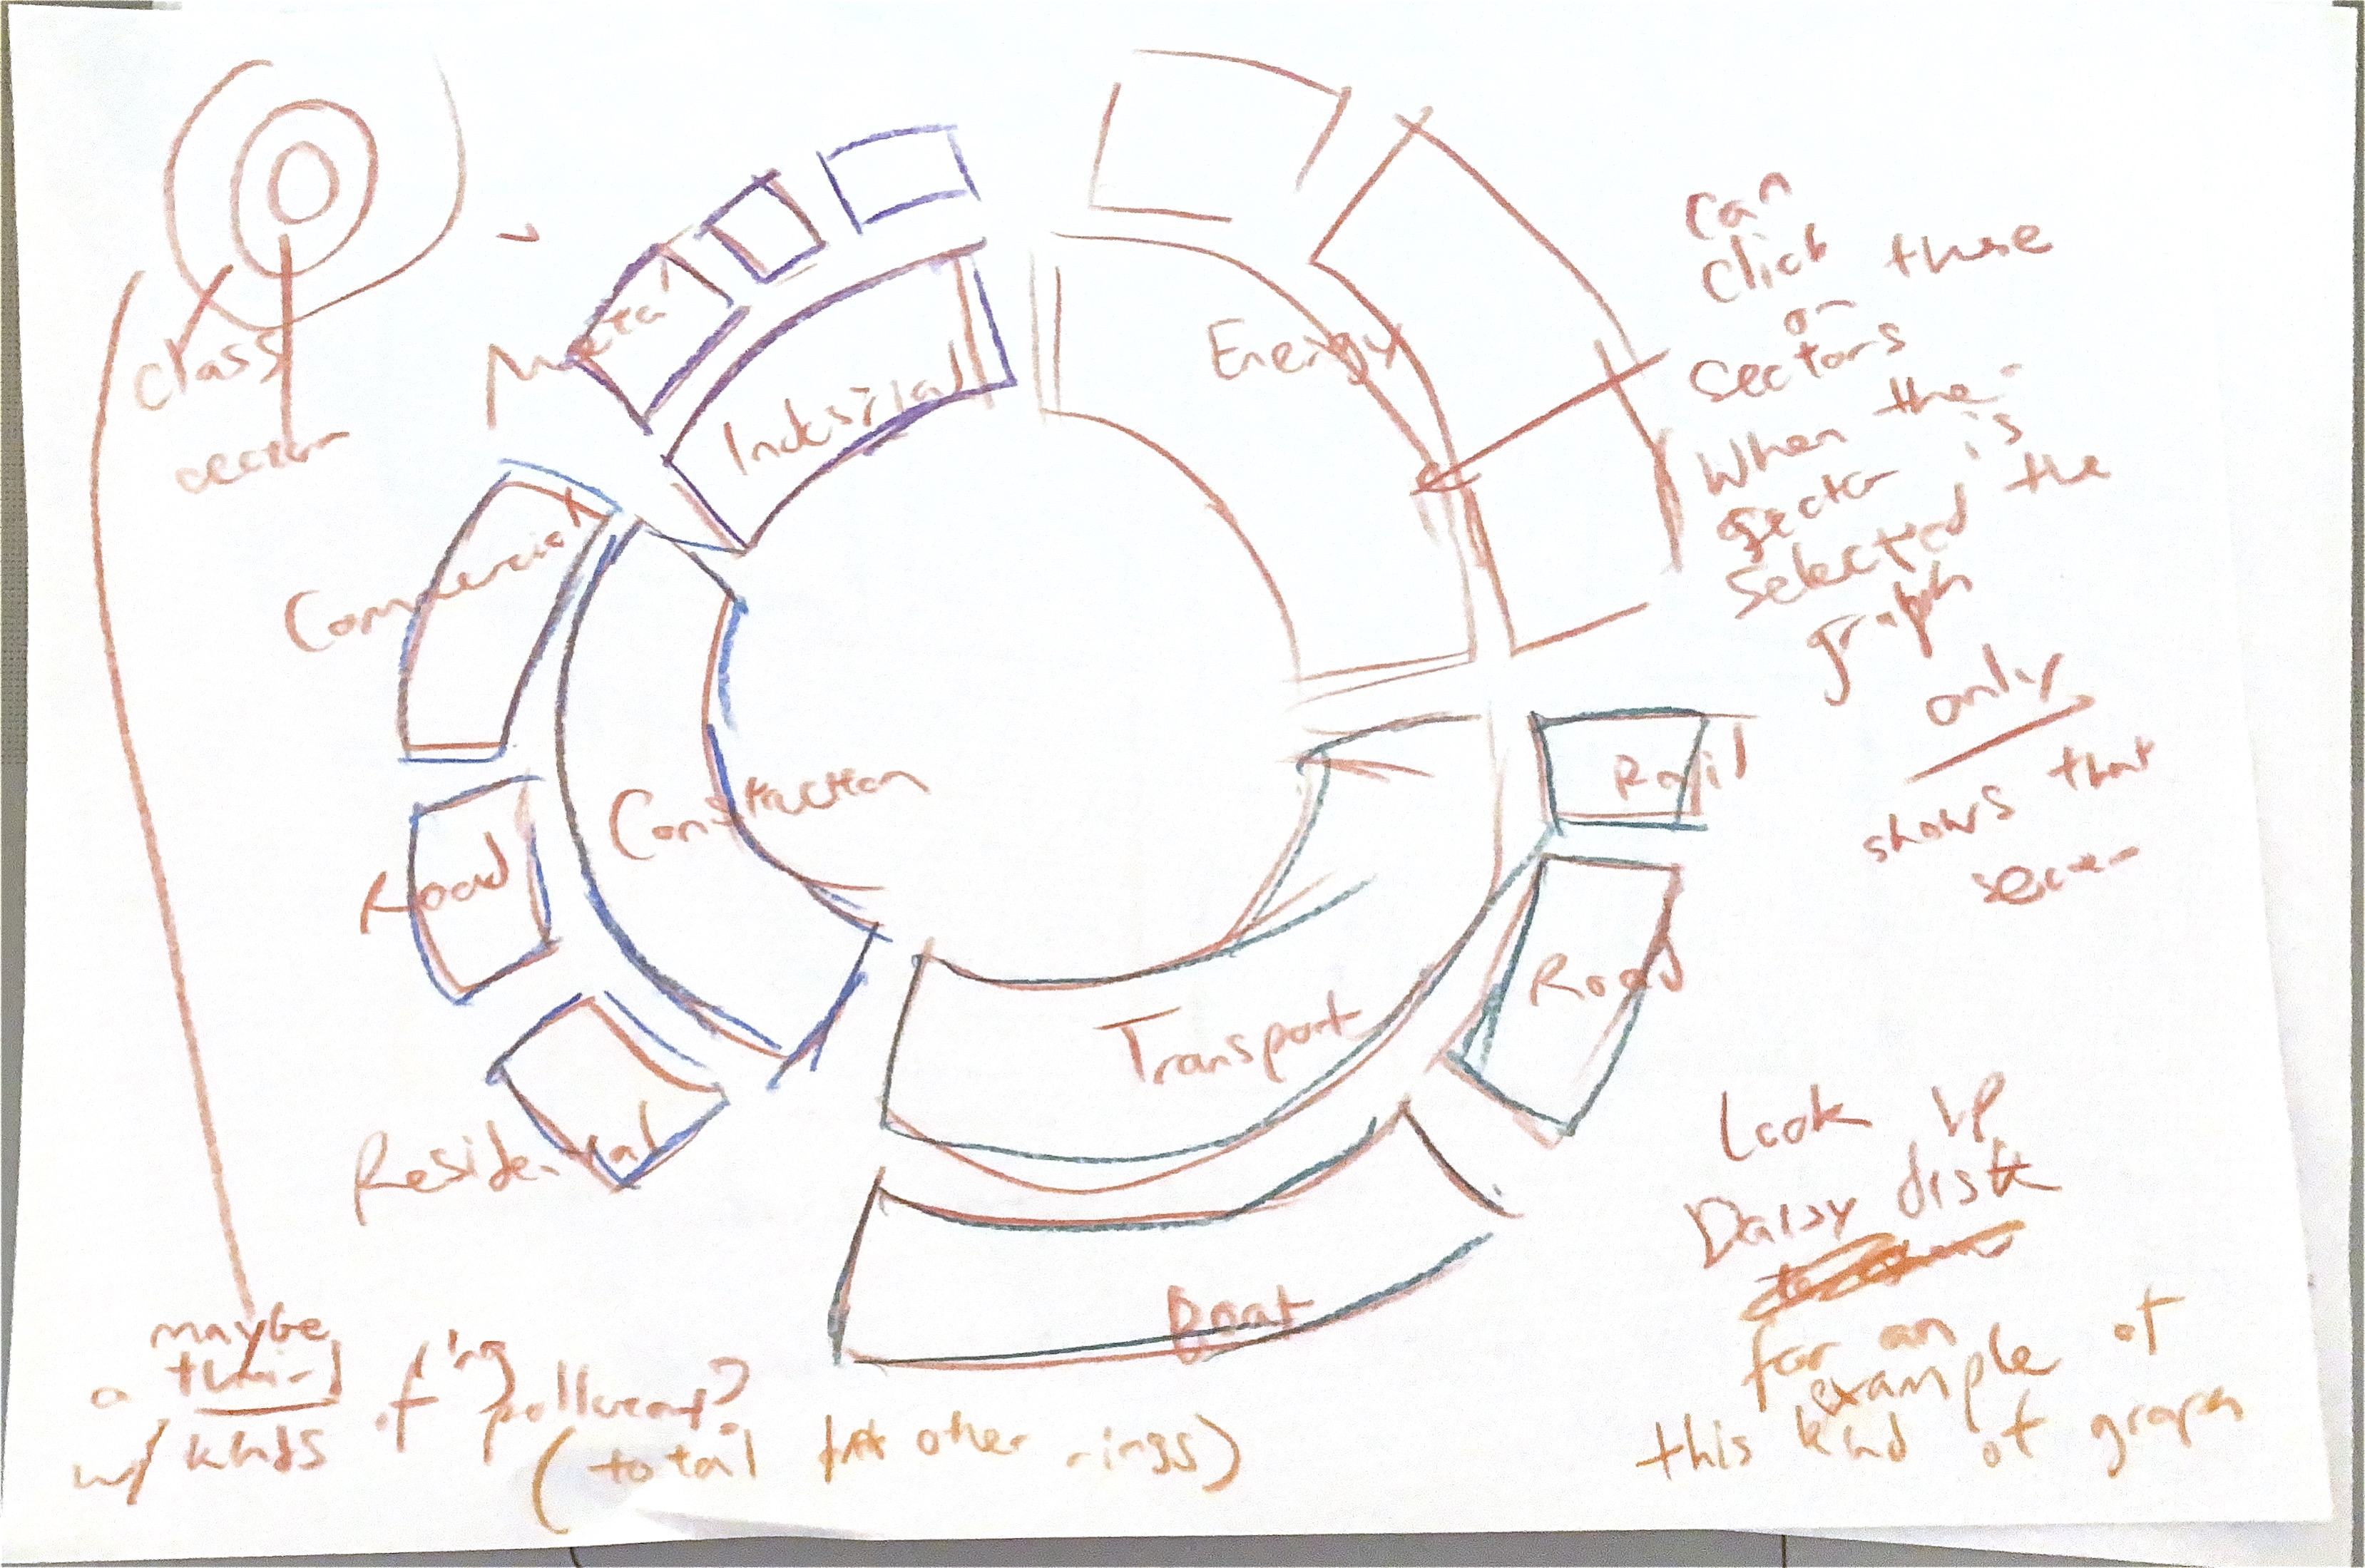 class
sector
Metal
Indusrial
Energy
Commercial
Construction
Road
Residential
Transport
Rail
Road
Boat
can
click these
on
sectors
When the
sector is
selected the
graph
only
shows that
sector
Look up
Daisy disk
for an
example of
this kind of graph
maybe
a third ring
w/ kinds of pollutant?
(total for other rings)